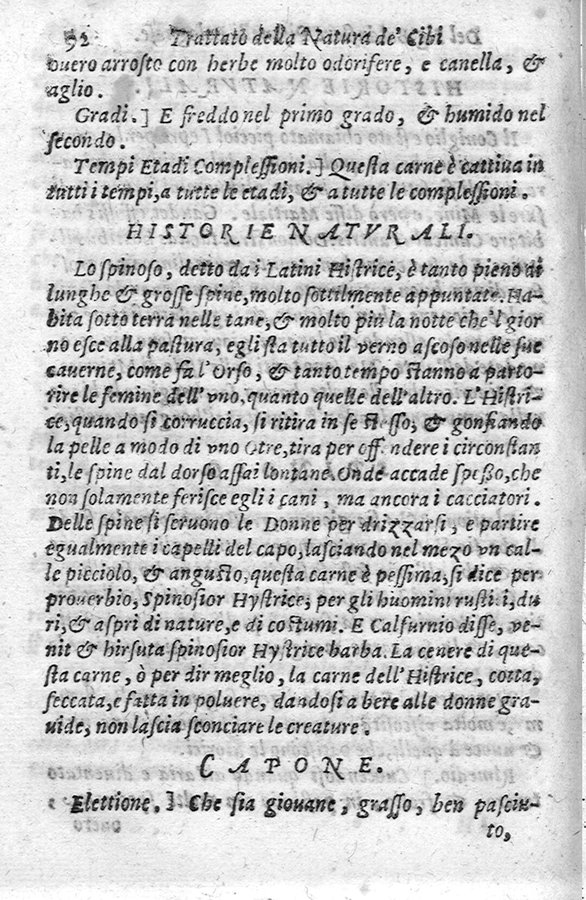 52 Trattato della Natura de' Cibi
ouero arrosto con herbe molto odorifere, e canella, &
aglio.
Gradi.] E freddo nel primo grado, & humido nel
secondo.
Tempi Etadi Complessioni.] Questa carne è cattiua in
tutti i tempi, a tutte le etadi, & a tutte le complessioni.
HISTORIE NATVRALI.
Lo spinoso, detto da i Latini Histrice, è tanto pieno di
lunghe & grosse spine, molto sottilmente appuntate. Ha-
bita sotto terra nelle tane, & molto più la notte che'l gior
no esce alla pastura, egli sta tutto il verno ascoso nelle sue
cauerne, come fa l'Orso, & tanto tempo stanno a parto-
rire le femine dell'vno, quanto quelle dell'altro. L'Histri-
ce, quando si corruccia, si ritira in se stesso, & gonfiando
la pelle a modo di vno Otre, tira per off ndere i circonstan
ti, le spine dal dorso assai lontane. Onde accade spesso, che
non solamente ferisce egli i cani, ma ancora i cacciatori.
Delle spine si seruono le Donne per drizzarsi, e partire
egualmente i capelli del capo, lasciando nel mezo vn cal-
le picciolo, & angusto, questa carne è pessima, si dice per
prouerbio, Spinosior Hystrice, per gli huomini rusti i, du
ri, & aspri di nature, e di costumi. E Calfurnio disse, ve-
nit & hirsuta spinosior Hystrice barba. La cenere di que-
sta carne, ò per dir meglio, la carne dell'Histrice, cotta,
seccata, e fatta in poluere, dandosi a bere alle donne gra-
uide, non lascia sconciare le creature.
CAPONE.
Elettione.] Che sia giouane, grasso, ben pasciu-
to,